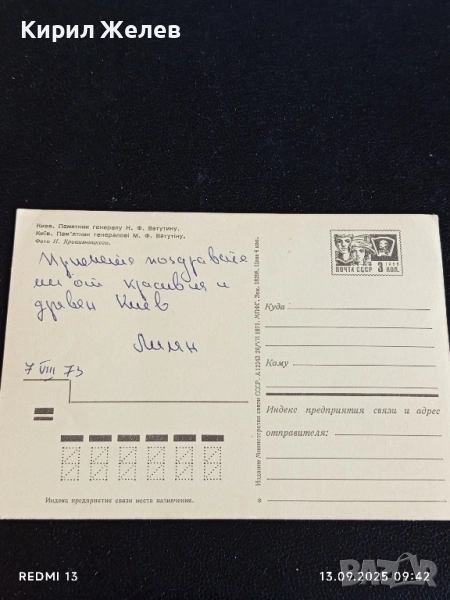 Кирил Желев
Киев. Памятник генералу Н. Ф. Ватутину.
Київ. Пам'ятник генералові М. Ф. Ватутіну.
Фото И. Кропивницкого.
Приемете поздравите
ми от красивия и
древен Киев
Лиян
7 VIII 73
ПОЧТА СССР 3 КОП.
1966
Куда
Кому
Индекс предприятия связи и адрес
отправителя:
Издание Министерства связи СССР. А 12543 26/VII 1971. МПФГ. Зак. Цена 4 коп.
Индекс предприятия связи места назначения.
REDMI 13
13.09.2025 09:42
BAZAR